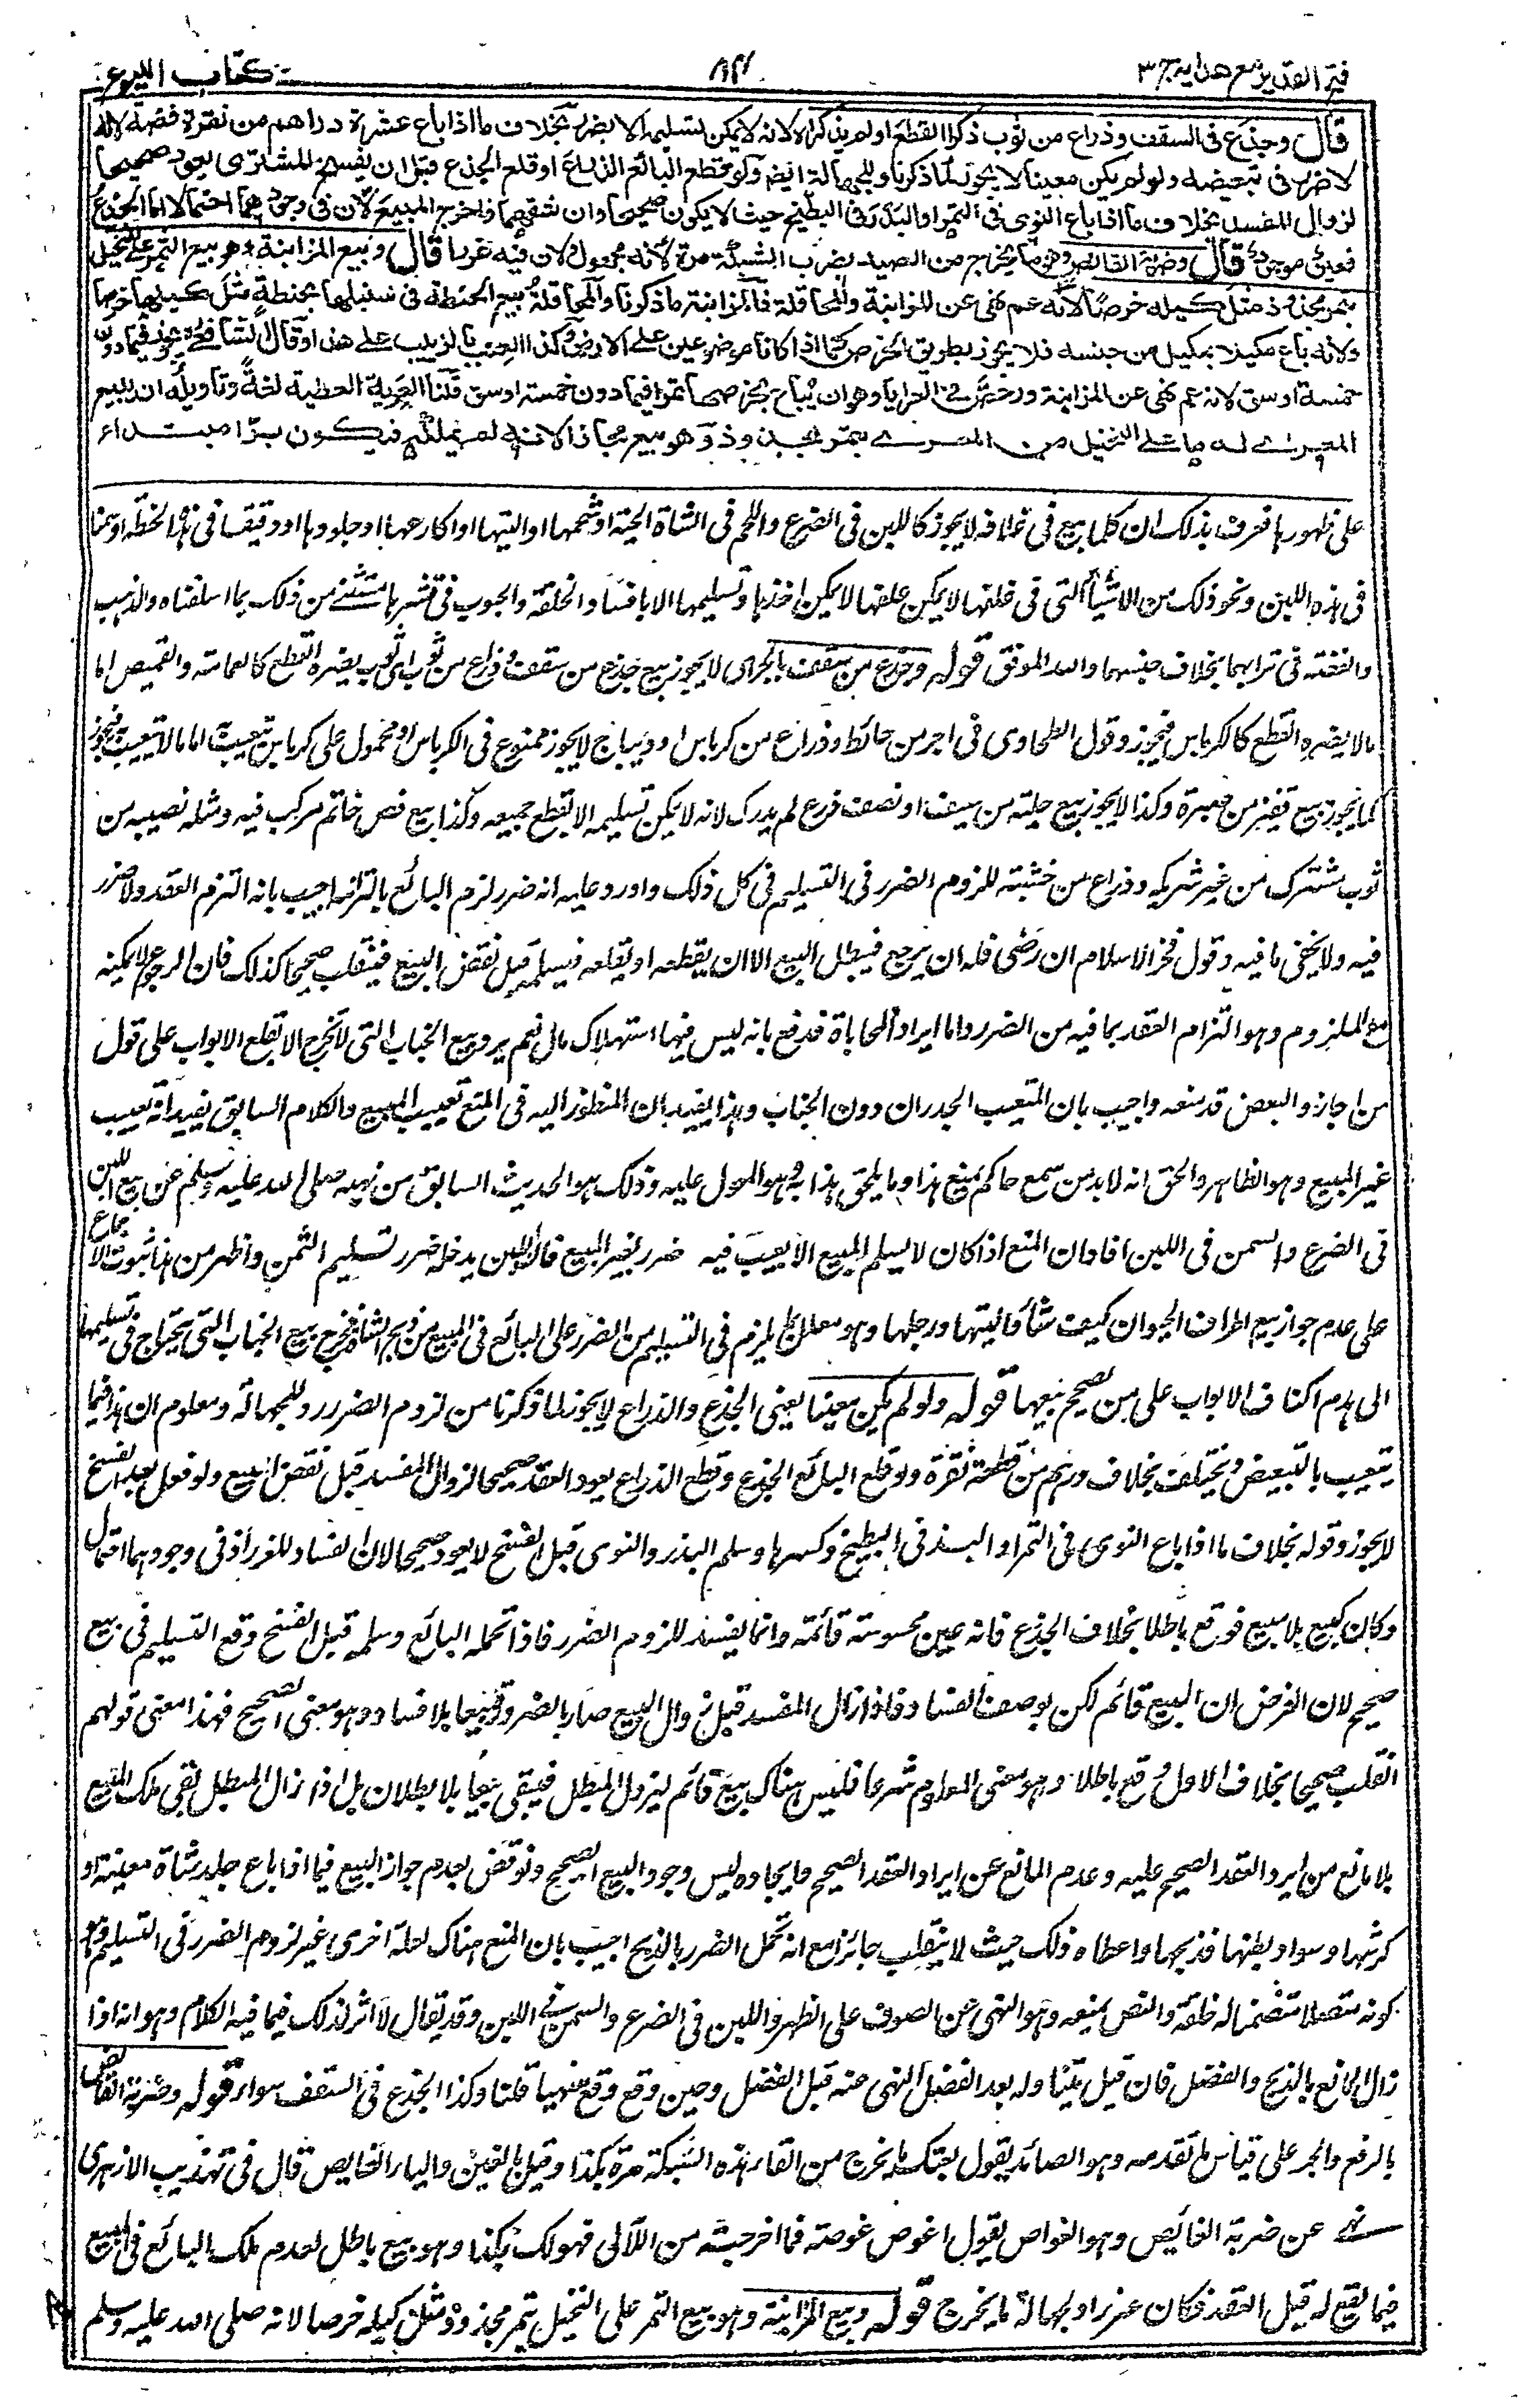 فتح القدير مع هدايه ج ٣
كتاب البيوع
قال وجذع فى السقف وذراع من ثوب ذكرا القطع او لم يذكراه لانه لا يمكن تسليمه الا بضرر بخلاف ما اذا باع عشرة دراهم من نقرة فضة لانه
لا ضرر فى تبعيضه ولو لم يكن معينا لا يجوز لما ذكرنا وللجهالة ايضا ولو قطع البائع الذراع او قلع الجذع قبل ان يفسخ المشترى يعود صحيحا
لزوال المفسد بخلاف ما اذا باع النوى فى التمر او البذر فى البطيخ حيث لا يكون صحيحا وان شقهما واخرج المبيع لان فى وجودهما احتمالا اما الجذع
فعين موجود قال وضربة القانص وهو ما يخرج من الصيد بضرب الشبكة مرة لانه مجهول ولان فيه غررا قال وبيع المزابنة وهو بيع التمر على النخيل
بتمر مجذوذ مثل كيله خرصا لانه عم نهى عن المزابنة والمحاقلة فالمزابنة ما ذكرنا والمحاقلة بيع الحنطة فى سنبلها بحنطة مثل كيلها خرصا
ولانه باع مكيلا بمكيل من جنسه فلا يجوز بطريق الخرص كما اذا كانا موضوعين على الارض وكذا العنب بالزبيب على هذا وقال الشافعى يجوز فيما دون
خمسة اوسق لانه عم نهى عن المزابنة ورخص فى العرايا وهو ان يباع بخرصها تمرا فيما دون خمسة اوسق قلنا العرية العطية لغة وتاويله ان يبيع
المعرى له ما على النخيل من المعرى بتمر مجذوذ وهو بيع مجازا لانه لم يملكه فيكون برا مبتدأ
على ظهورها فعرف بذلك ان كل ما بيع فى غلافه لا يجوز كاللبن فى الضرع واللحم فى الشاة الحية او شحمها او اليتها او اكارعها او جلودها او دقيق فى هذه الحنطة او سمن
فى هذه اللبن ونحو ذلك من الاشياء التى فى غلفها لا يمكن اخذها وتسليمها الا بافساد الخلقة والحبوب فى قشرها مستثنى من ذلك بما اسلفناه والذهب
والفضة فى ترابهما بخلاف جنسهما والله الموفق قوله وجذع من سقف بالجر اى لا يجوز بيع جذع من سقف وذراع من ثوب اى ثوب يضره القطع كالعمامة والقميص اما
ما لا يضره القطع كالكرباس فيجوز وقول الطحاوى فى آجر من حائط وذراع من كرباس او ديباج لا يجوز ممنوع فى الكرباس او محمول على كرباس يتعيب اما ما لا يتعيب به فيجوز
كما يجوز بيع قفيز من صبرة وكذا لا يجوز بيع حلية من سيف او نصف زرع لم يدرك لانه لا يمكن تسليمه الا بقطع جميعه وكذا بيع فص خاتم مركب فيه ومثله نصيبه من
ثوب مشترك من غير شريكه وذراع من خشبة للزوم الضرر فى التسليم فى كل ذلك واورد عليه انه ضرر لزم البائع بالتزامه اجيب بانه التزم العقد ولا ضرر
فيه ولا يخفى ما فيه وقول فخر الاسلام ان رضى فله ان يرجع فيبطل البيع الا ان يقطعه او يقلعه فيسلمه قبل نقض البيع فينقلب صحيحا كذلك فان الرجوع لا يمكنه
مع الملزوم وهو التزام العقد بما فيه من الضرر واما ايراد المحاباة فدفع بانه ليس فيها استهلاك مال نعم يرد بيع الخباب التى لا تخرج الا بقلع الابواب على قول
من اجازه والبعض قد منعه واجيب بان المتعيب الجدران دون الخباب وهذا يفيد ان المنظور اليه فى المنع تعييب المبيع والكلام السابق يفيد انه تعييب
غير المبيع وهو الظاهر والحق انه لا بد من سمع حاكم بمنع هذا وما يلحق بذا به هو المعول عليه وذلك هو الحديث السابق من نهيه صلى الله عليه وسلم عن بيع اللبن
فى الضرع والسمن فى اللبن افاد ان المنع اذا كان لا يسلم المبيع الا بعيب فيه ضرر لغير المبيع فان اللبن يدخله ضرر تسليم الثمن واظهر من هذا ثبوت الاجماع
على عدم جواز بيع اطراف الحيوان كيف شاء كاليتها ورجلها وهو معلل بما يلزم فى التسليم من الضرر على البائع فى المبيع من ذبح الشاة فخرج بيع الخباب التى يحتاج فى تسليمها
الى هدم اكناف الابواب على من يصحح بيعها قوله ولو لم يكن معينا يعنى الجذع والذراع لا يجوز لما ذكرنا من لزوم الضرر وللجهالة ومعلوم ان هذا فيما
يتعيب بالتبعيض ويختلف بخلاف درهم من قطعة نقرة ولو قلع البائع الجذع وقطع الذراع يعود العقد صحيحا لزوال المفسد قبل نقض البيع ولو فعل بعد الفسخ
لا يجوز وقوله بخلاف ما اذا باع النوى فى التمر او البذر فى البطيخ وكسرها وسلم البذر والنوى قبل الفسخ لا يعود صحيحا لان الفساد للغرر اذ فى وجودهما احتمال
وكان كبيع بلا مبيع فوقع باطلا بخلاف الجذع فانه عين محسوسة قائمة وانما يفسد للزوم الضرر فاذا تحمله البائع وسلمه قبل الفسخ وقع التسليم فى بيع
صحيح لان الفرض ان البيع قائم لكن بوصف الفساد فاذا زال المفسد قبل زوال البيع صار بالضرورة بيعا بلا فساد وهو معنى الصحيح فهذا معنى قولهم
انقلب صحيحا بخلاف الاول وقع باطلا وهو معنى المعدوم شرعا فليس هناك بيع قائم ليزول المبطل فيبقى بيعا بلا بطلان بل اذا زال المبطل بقى ملك المبيع
بلا مانع من ايراد العقد الصحيح عليه وعدم المانع عن ايراد العقد الصحيح وايجاده ليس وجود البيع الصحيح ونوقض بعدم جواز البيع فيما اذا باع جلد شاة معينة او
كرشها وسواد بطنها فذبحها واعطاه ذلك حيث لا ينقلب جائزا مع انه تحمل الضرر بالذبح اجيب بان المنع هناك لعلة اخرى غير لزوم الضرر فى التسليم وهو
كونه متصلا متضمنا له خلقة والنص يمنعه وهو النهى عن الصوف على الظهر واللبن فى الضرع والسمن فى اللبن وقد يقال لا اثر لذلك فيما فيه الكلام وهو انه اذا
زال المانع بالذبح والفصل فان قيل يتناوله بعد الفصل النهى عنه قبل الفصل وحين وقع وقع منهيا قلنا وكذا الجذع فى السقف سواء قوله وضربة القانص
بالرفع والجر على قياس ما تقدمه وهو الصائد يقول بعتك ما يخرج من القاء هذه الشبكة مرة بكذا وقيل بالغين والياء الغايص قال فى تهذيب الازهرى
نهى عن ضربة الغائص وهو الغواص يقول اغوص غوصة فما اخرجته من اللآلى فهو لك بكذا وهو بيع باطل لعدم ملك البائع فى المبيع
فيما يقع له قبل العقد فكان غررا ولجهالة ما يخرج قوله وبيع المزابنة وهو بيع التمر على النخيل بتمر مجذوذ مثل كيله خرصا لانه صلى الله عليه وسلم